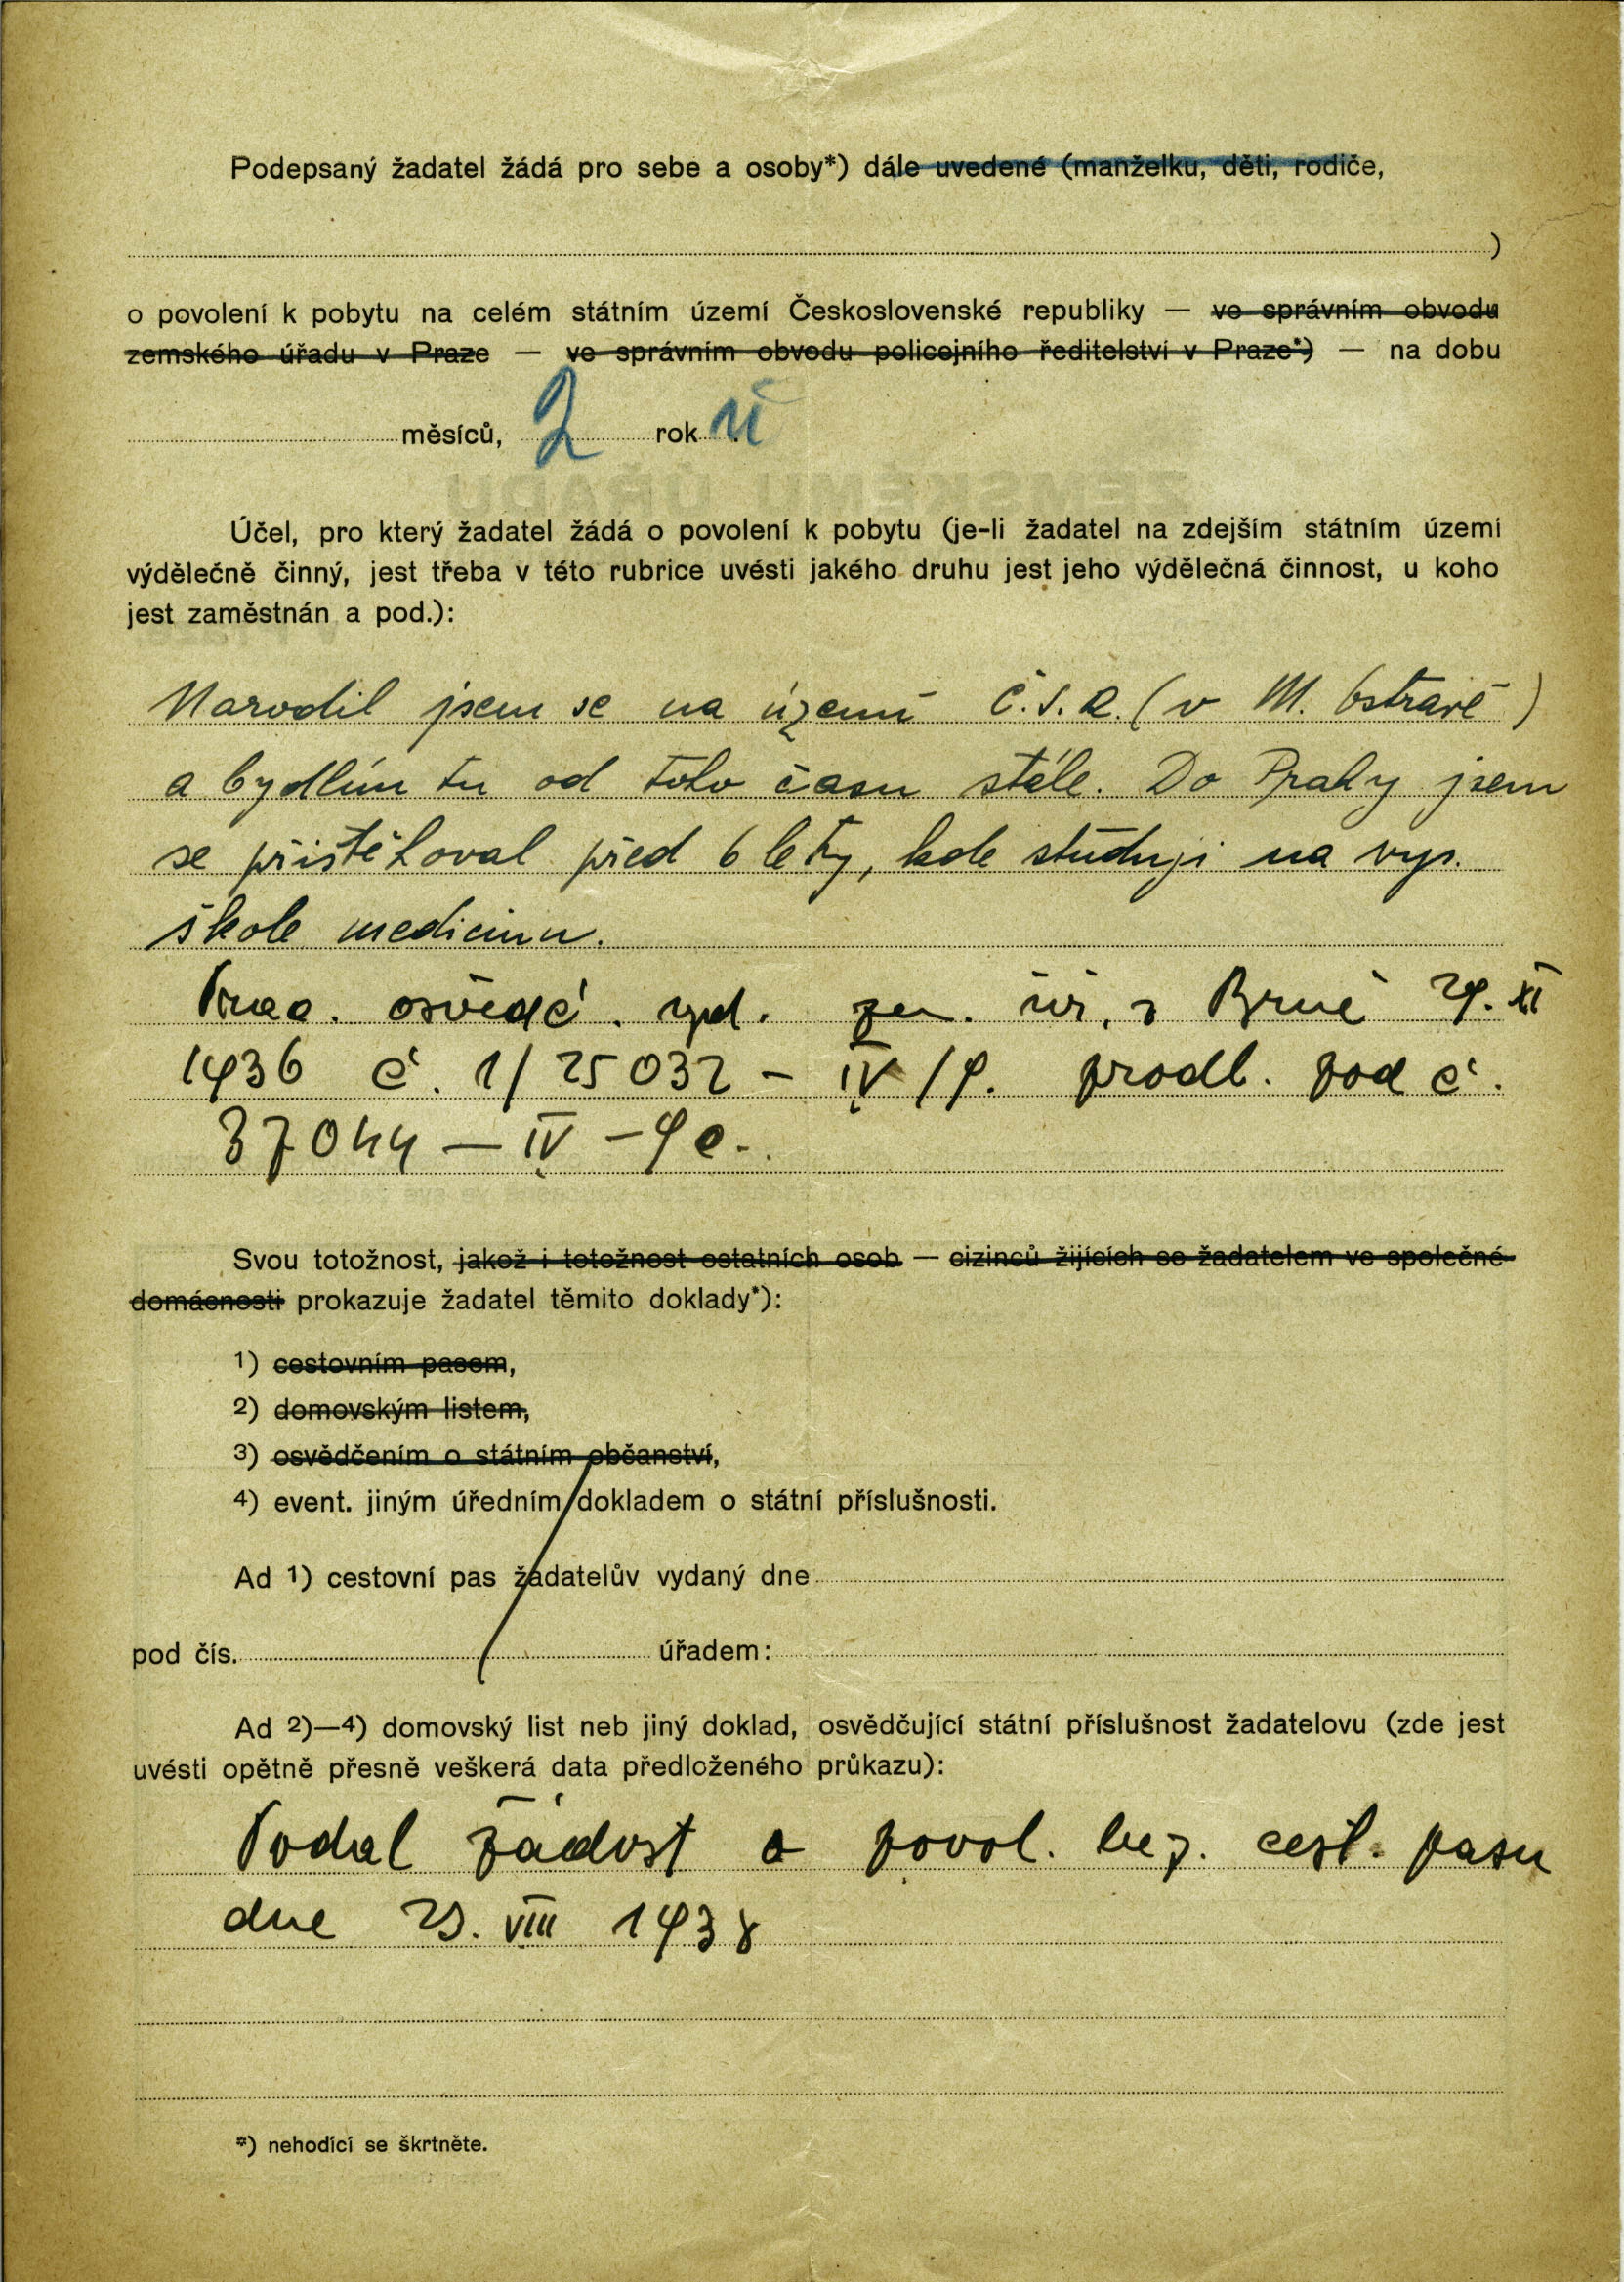 Podepsaný žadatel žádá pro sebe a osoby*) dále uvedené (manželku, děti, rodiče,
)
o povolení k pobytu na celém státním území Československé republiky — ve správním obvodu
zemského úřadu v Praze — ve správním obvodu policejního ředitelství v Praze*) — na dobu
měsíců, 2 rok ů
Účel, pro který žadatel žádá o povolení k pobytu (je-li žadatel na zdejším státním území
výdělečně činný, jest třeba v této rubrice uvésti jakého druhu jest jeho výdělečná činnost, u koho
jest zaměstnán a pod.):
Narodil jsem se na území Č.S.R. (v M. Ostravě)
a bydlím tu od toho času stále. Do Prahy jsem
se přistěhoval před 6 lety, kde studuji na vys.
škole medicinu.
osvědč. vyd. zem. úř. v Brně 29. XI
1936 č. 1/25032 - IV/9. prodl. pod č.
37044 — IV - 9 c.
Svou totožnost, jakož i totožnost ostatních osob — cizinců žijících se žadatelem ve společné
domácnosti prokazuje žadatel těmito doklady*):
1) cestovním pasem,
2) domovským listem,
3) osvědčením o státním občanství,
4) event. jiným úředním dokladem o státní příslušnosti.
Ad 1) cestovní pas žadatelův vydaný dne
pod čís. úřadem:
Ad 2)—4) domovský list neb jiný doklad, osvědčující státní příslušnost žadatelovu (zde jest
uvésti opětně přesně veškerá data předloženého průkazu):
Podal žádost o povol. bez. cest. pasu
dne VIII 1938
*) nehodící se škrtněte.